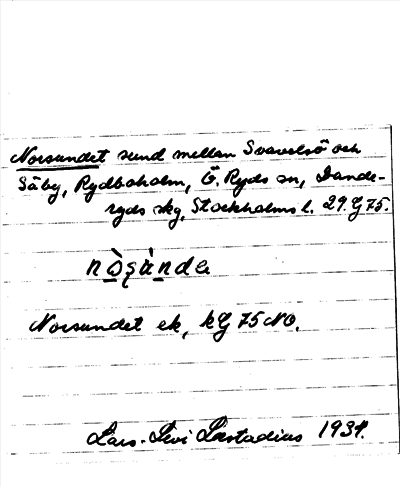 Norsundet sund mellan Svavelsö och
Säby, Rydboholm, Ö. Ryds sn, Dande-
ryds skg, Stockholms l. 29. G 75.
Norsundet ek, kG 75 NO.
Lars-Levi Læstadius 1931.